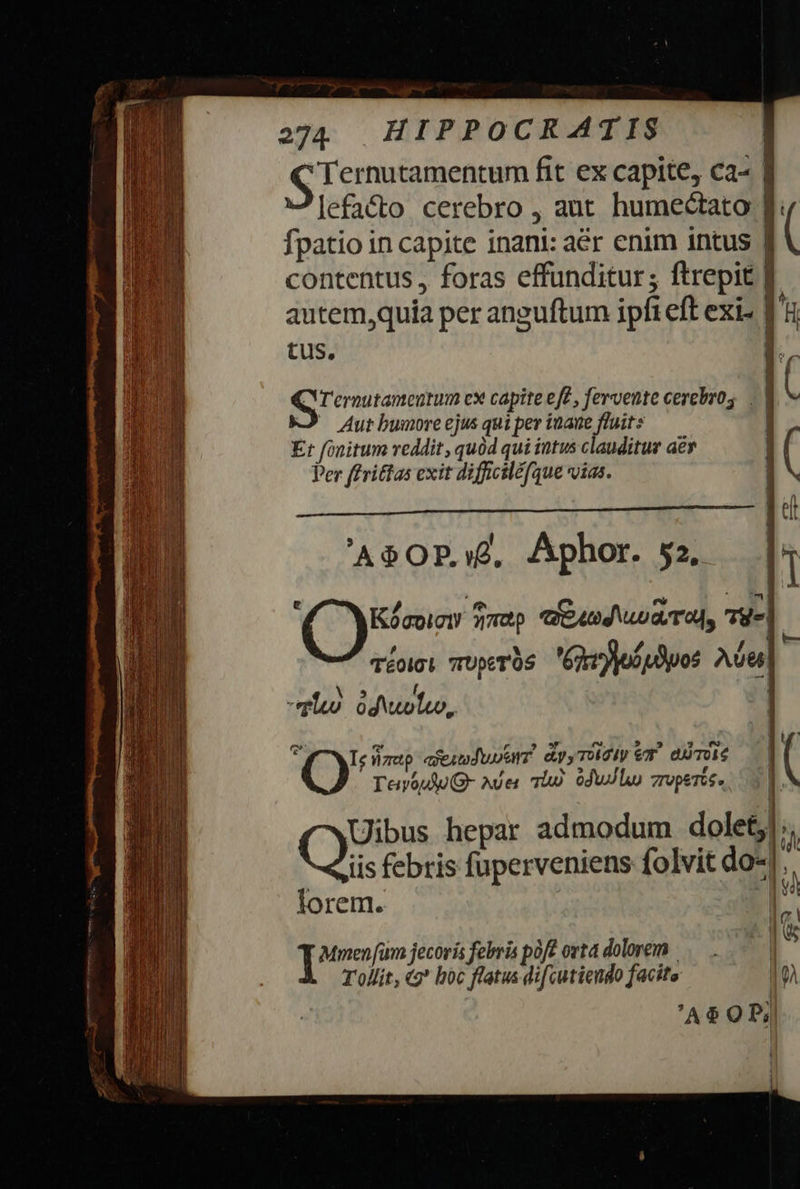 274 HIPPOCRATIS
STernutamentum fit ex capite, ca-
lefacto cerebro, aut humectato
ſpatio in capite inani: aër enim intus
contentus, foras effunditur; ſtrepit
autem, quia per anguſtum ipſi eſt exi-
tus.
STernutamentum ex capite eſt, fervente cerebro,
Aut humore ejus qui per inane fluit:
Et ſonitum reddit, quòd qui intus clauditur aër
Per ſtrictas exit difficiléſque vias.
ἈΦΟΡ. νβ. Aphor. 52.
ὉΚόσοισιν ἧπαρ περιωδυνᾶται, του-
τέοισι πυρετὸς ἐπιγενόμενος λύει
τὴν ὀδύνην.
Οἷς ἧπαρ περιωδυνέητ᾽ ἄγ, τοῖσιν ἐπ᾽ αὐτοῖς
Γεινόμενος λύει τὴν ὀδύνην πυρετός.
QUibus hepar admodum dolet,
iis febris ſuperveniens ſolvit do-
lorem.
IMmenſum jecoris febris pòſt orta dolorem
Tollit, & hoc flatus diſcutiendo facit.
ἈΦΟΡ.